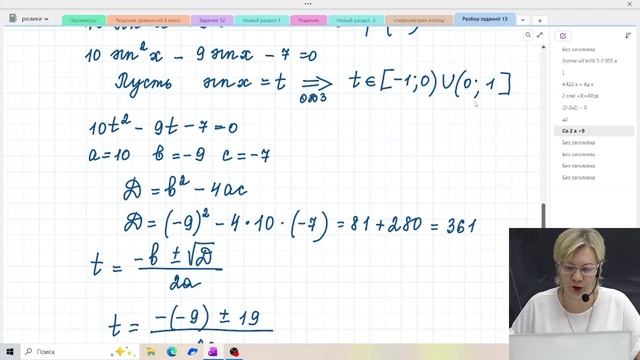 ролики
Параметры
Решение уравнений 6 класс
Задание 12
Новый раздел 1
Решение
Новый раздел 2
стереометрия ответы
Разбор заданий 13
10 sin²x − 9 sinx − 7 = 0
Пусть sinx = t ⟹ ОДЗ t ∈ [−1; 0) ∪ (0; 1]
10t² − 9t − 7 = 0
a = 10 b = −9 c = −7
Д = b² − 4ac
Д = (−9)² − 4 · 10 · (−7) = 81 + 280 = 361
t = (−b ± √Д) / 2a
t = −(−9) ± 19
Без заголовка
Без заголовка
Без заголовка
Без заголовка
Без заголовка
Поиск